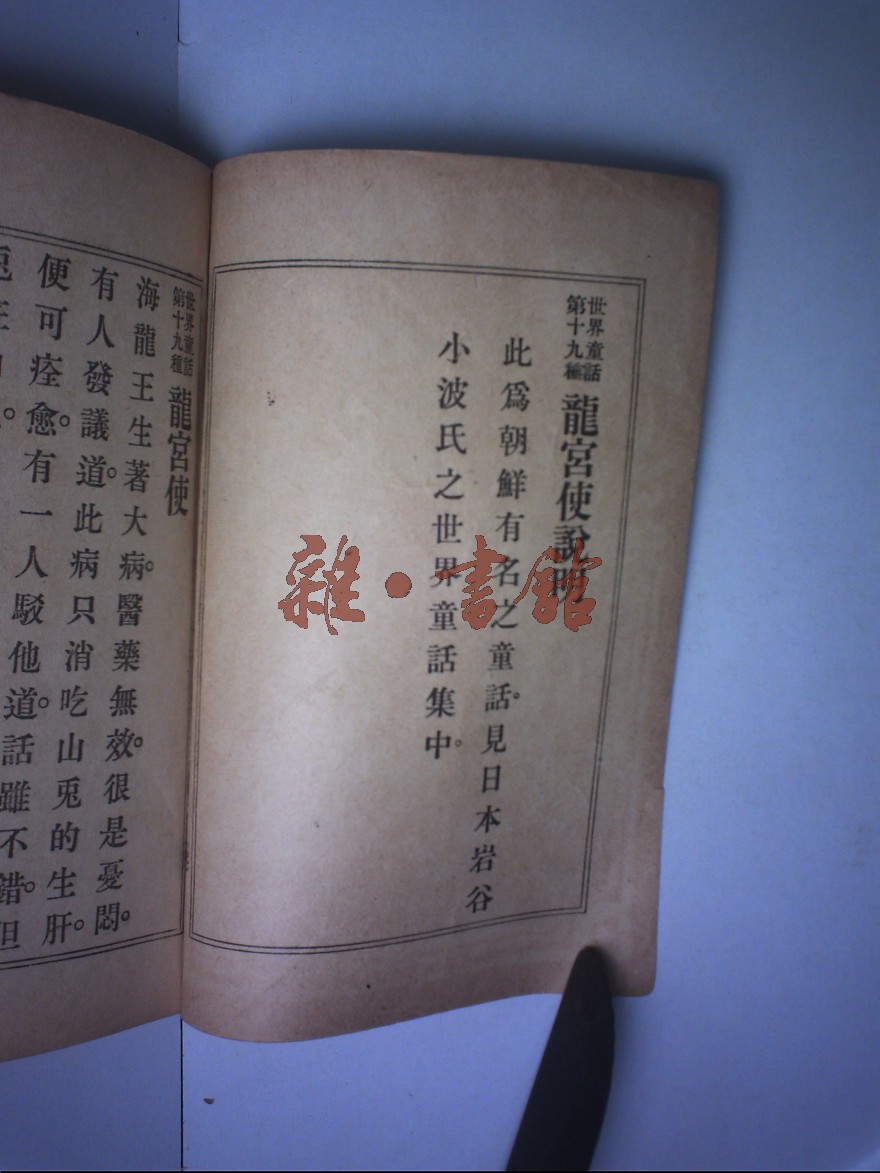 世界童話
第十九種
龍宮使說明
此爲朝鮮有名之童話。見日本岩谷
小波氏之世界童話集中。
世界童話
第十九種
龍宮使
海龍王生著大病。醫藥無效。很是憂悶。
有人發議道。此病只消吃山兎的生肝。
便可痊愈。有一人駁他道。話雖不錯。但
雜·書館